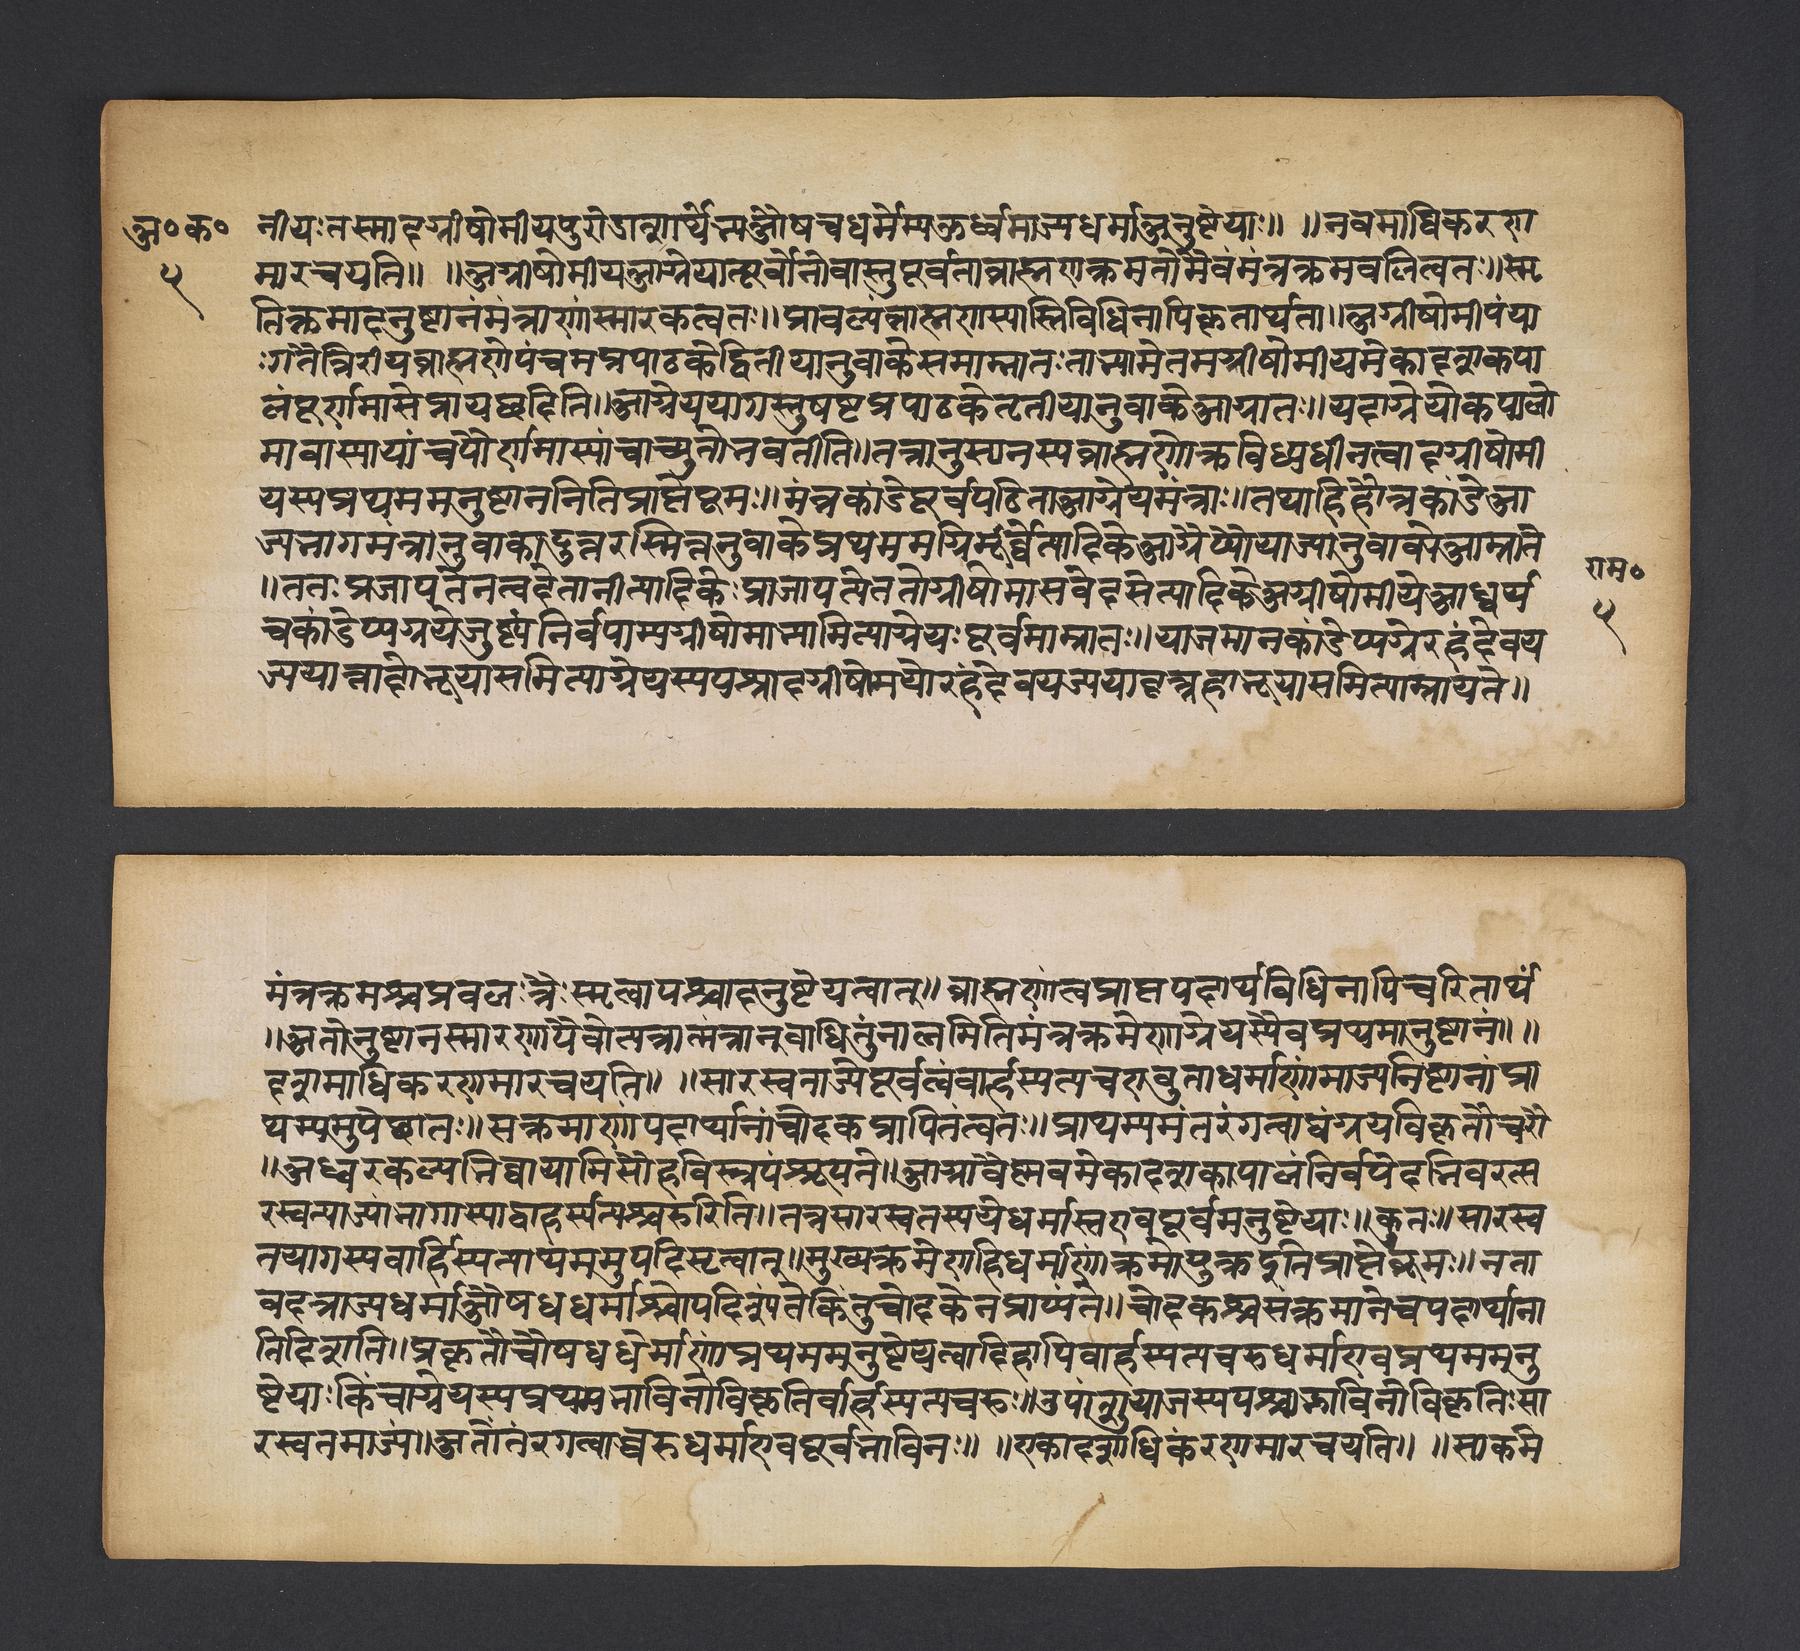 अ॰क॰
५
नीयः तस्मादग्नीषोमीयपुरोडाशार्थेभ्य औषधधर्मेभ्य ऊर्ध्वमाज्यधर्मा अनुष्ठेयाः॥ ॥नवमाधिकरण
मारचयति॥ ॥अग्नीषोमीय आग्नेयात्पूर्वोनोवास्तुपूर्वता ब्राह्मणक्रमतो मैवं मंत्रक्रमबलित्वतः॥स्मृ
तिक्रमादनुष्टानं मंत्राणां स्मारकत्वतः॥प्राबल्यं ब्राह्मणस्यास्ति विधिनापि कृतार्थता॥अग्नीषोमीयं या
ःगतैत्तिरीयब्राह्मणे पंचमप्रपाठके द्वितीयानुवाके समाम्नातः ताभ्यामेतमग्नीषोमीयमेकादशकपा
लं पूर्णमासे प्रायछदिति॥आग्नेययागस्तु षष्टप्रपाठके तृतीयानुवाके आम्नातः॥यदाग्नेयोकपालो
मावास्यायां च पौर्णमास्यां चाच्युतो भवतीति॥तत्रानुस्टानस्य ब्राह्मणोक्तविध्यधीनत्वादग्नीषोमी
यस्य प्रथममनुष्टाननिति प्राप्ते ब्रूमः॥मंत्रकांडे पूर्वपठिता आग्नेयमंत्राः॥तथाहि हौत्रकांडे आ
ज्यभागमंत्रानुवाकादुत्तरस्मिन्ननुवाके प्रथममग्निर्मूर्द्धेत्यादिके आग्नेय्यो याज्यानुवाक्ये आम्नाते
॥ततः प्रजापते नत्वदेतानीत्यादिके प्राजापत्ये ततोग्नीषोमा सवेदसेत्यादिके अग्नीषोमीये आध्वर्य
वकांडेप्यग्नये जुष्टं निर्वपाम्यग्नीषोमाभ्यामित्याग्नेयः पूर्वमाम्नातः॥याजमानकांडेप्यग्नेरहं देवय
ज्ययान्नादो भूयासमित्याग्नेयस्य पश्चादग्नीषोमयोरहं देवयज्यया वृत्रहा भूयासमित्याम्नायते॥
राम॰
५
मंत्रक्रमश्च प्रबलः त्रैः स्मृत्वा पश्चादनुष्टेयत्वात्॥ब्राह्मणं त्वप्राप्तपदार्थविधिनापि चरितार्थं
॥अतोनुष्टानस्मारणायैवोत्पन्नान्मंत्रानुबाधितुं नालमिति मंत्रक्रमेणाग्नेयस्यैव प्रथमानुष्टानं॥ ॥
दशमाधिकरणमारचयति॥ ॥सारस्वताज्ये पूर्वत्वं बार्हस्पत्यचरावुत धर्माणामाज्यनिष्टानां प्रा
थम्यमुपेष्यातः॥सक्रमाणां पदार्थानां चोदकप्रापितत्वतः॥प्राथम्यमंतरंगत्वाद्यंग्नयविकृतौ चरौ
॥अध्वरकल्पनिवायामि सौ हविस्त्रयं श्रूयते॥आग्नावैष्मवमेकादशकपालं निर्वपेदभिचरन्स
रस्वत्याज्यभागास्याद्बार्हस्पत्यश्चरुरिति॥तत्र सारस्वतस्य ये धर्मास्तएव पूर्वमनुष्टेयाः॥कुतः॥सारस्व
तयागस्य बार्हस्पत्याथममुपदिस्टत्वात्॥मुख्यक्रमेण हि धर्माणां क्रमो युक्त इति प्राप्ते ब्रूमः॥नता
वदत्राज्यधर्मा औषधधर्माश्चोपदिश्यंते किंतु चोदकेन प्राप्यंते॥चोदकश्च सक्रमानेव पदार्थाना
तिदिशति॥प्रकृतौ चौषधधर्माणां प्रथममनुष्टेयत्वादिहापि बार्हस्पत्यचरुधर्माएव प्रथममनु
ष्टेयाः किंचाग्नेयस्य प्रथमभाविनो विकृतिर्बार्हस्पत्यचरुः॥उपांशुयाजस्य पश्चाद्भाविनो विकृतिः सा
रस्वतमाज्यं॥अतोंतरंगत्वाच्चरुधर्माएव पूर्वभाविनः॥ ॥एकादशाधिकरणमारचयति॥ ॥साकमे